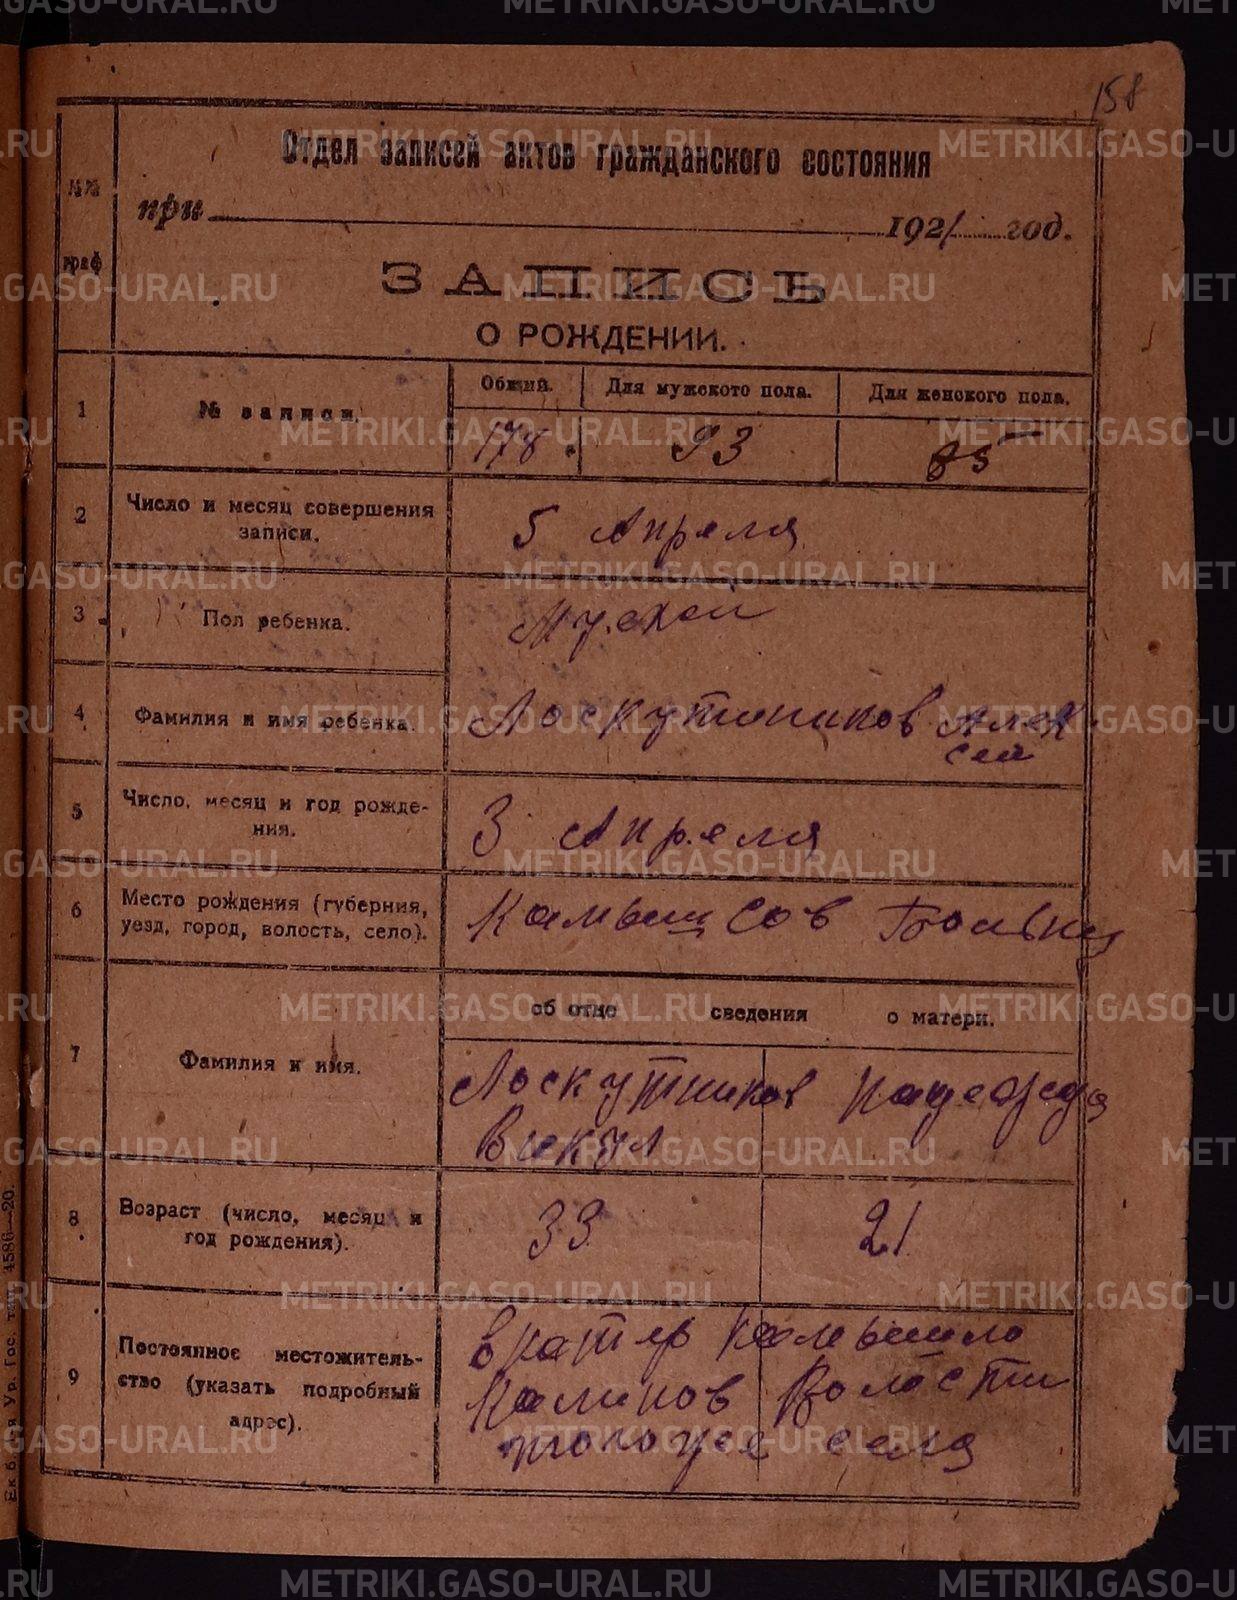 158
Отдел записей актов гражданского состояния
№№ граф
при 1921 год.
ЗАПИСЬ
О РОЖДЕНИИ.
Общий. Для мужского пола. Для женского пола.
1 № записи. 178. 93 85
2 Число и месяц совершения
записи. 5 Апреля
3 Пол ребенка. Муской
4 Фамилия и имя ребенка. Лоскутников Алек
сей
5 Число, месяц и год рожде-
ния. 3 Апреля
6 Место рождения (губерния,
уезд, город, волость, село).
об отце сведения о матери.
7 Фамилия и имя. Лоскутников
Викул
8 Возраст (число, месяц и
год рождения). 33 21
9 Постоянное местожитель-
ство (указать подробный
адрес). волости
села
Екб. 1-ая Ур. Гос. тип. 4586—20.
METRIKI.GASO-URAL.RU